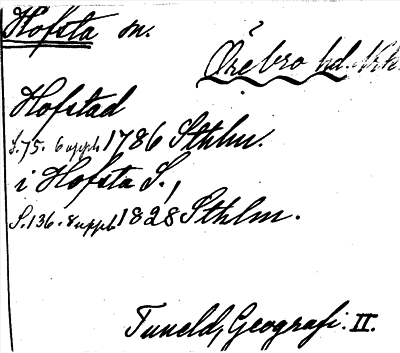 Hofsta sn.
Örebro hd. Nrk.
Hofstad
S. 75. 6 uppl 1786 Sthlm.
i Hofsta S.,
S. 136. 8 uppl 1828 Sthlm.
Tuneld, Geografi. II.